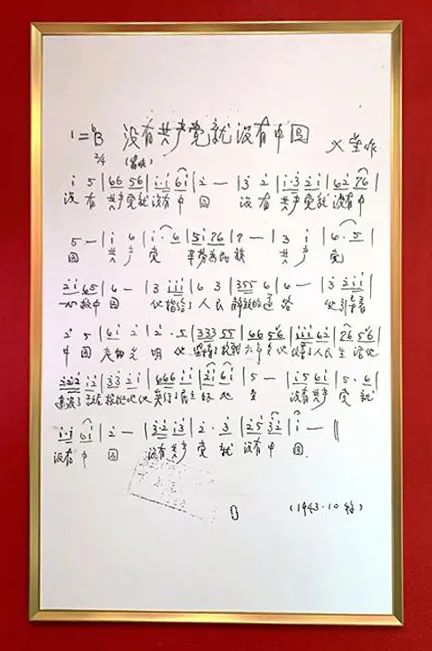 1=♭B 没有共产党就没有中国 火星作
2/4
i 5 | 66 56 | i·i 6i | 2 — | 3 2 | i·3 2i | 62 76 |
没有 共产党就没有中 国 没有 共产党就没有中
5 — | i 6 | i· 6 | 5i 76 | ? — | 3 i | 6·5 |
国 共产党 辛劳为民族 共产党
2i 65 | 6 — | 3 iii | 6 3 | 355 6 | 6 — | 3 2ii |
一心救中国 他指给了人民解放的道路 他引导着
2 5 | 6i 2 | 2·5 | 333 55 | 66 56 | iii 62 | 76 56 |
中国走向光明 他坚持了抗战六年多他改善了人民生活他
222 i2 | 33 2i | 666 ii | 2i 6i | 5 — | i5 6i | 5·6 |
建设了敌后根据地他实行了民主好处多 没有共产党就
i·i 6i | 2 — | 3·2 i3 | 2·3 | 25 32 | i — ‖
没有中国 没有共产党就没有中国
(1943·10)